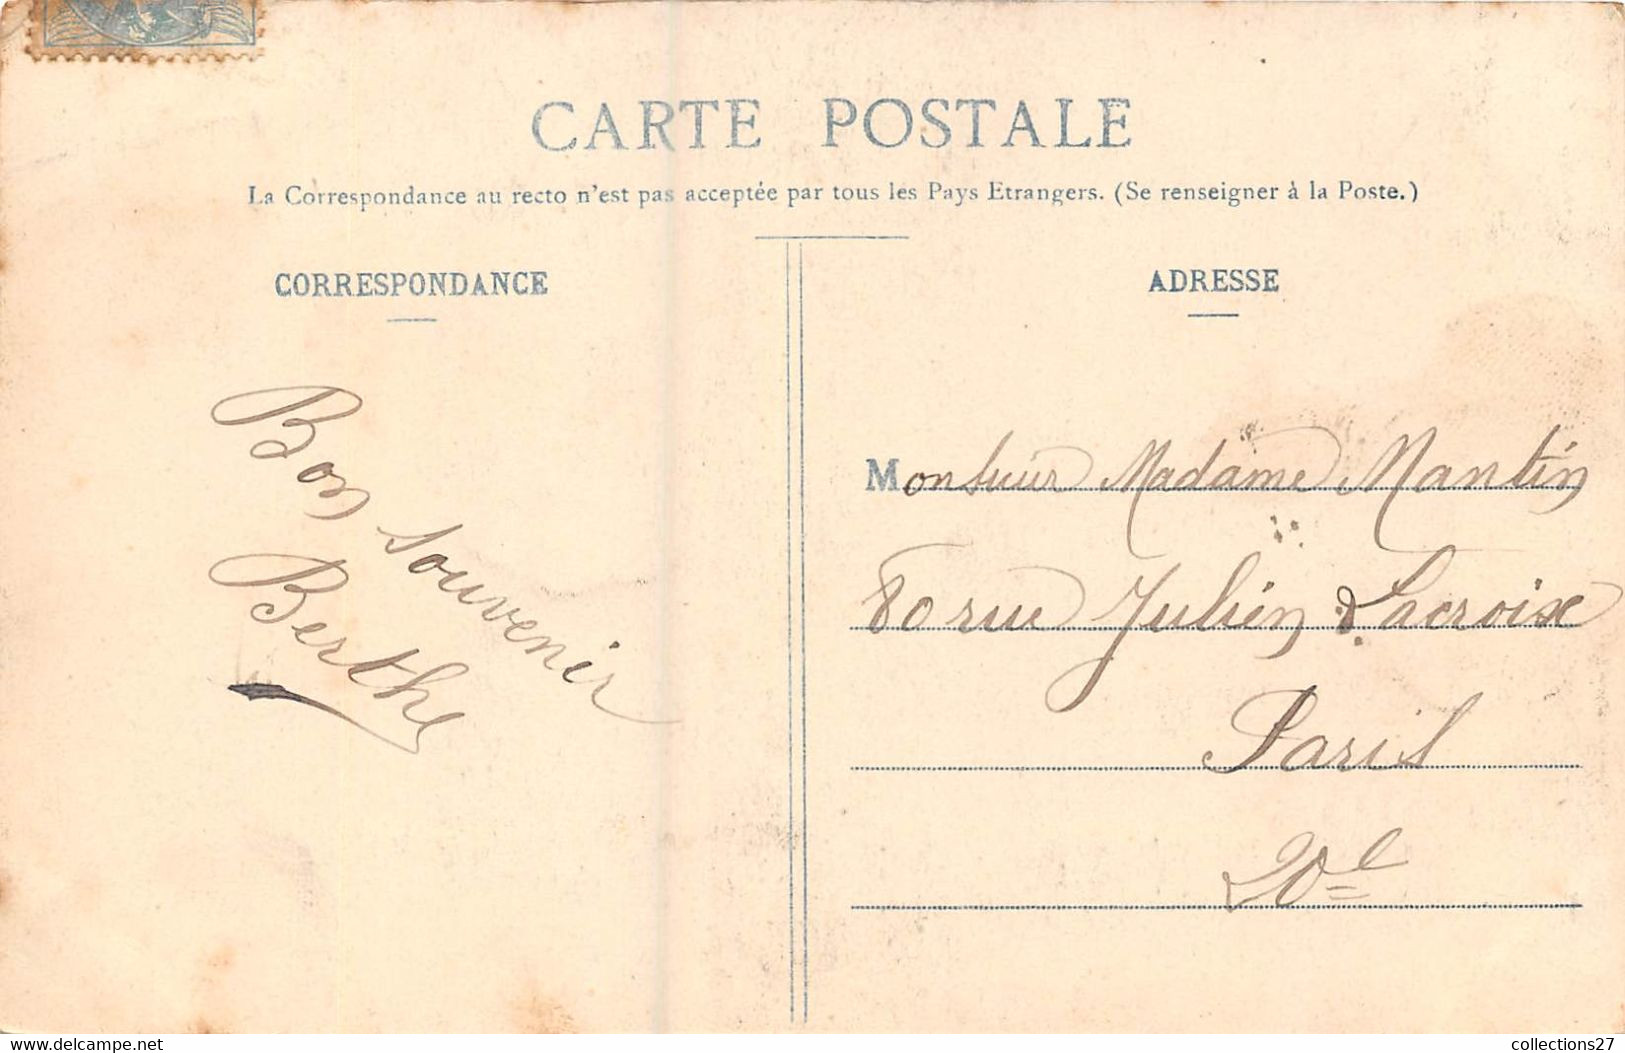 CARTE POSTALE
La Correspondance au recto n'est pas acceptée par tous les Pays Etrangers. (Se renseigner à la Poste.)
CORRESPONDANCE
Bon souvenir
Berthe
ADRESSE
Monsieur Madame Mantin
80 rue Julien Lacroix
Paris
20e
www.delcampe.net
collections27